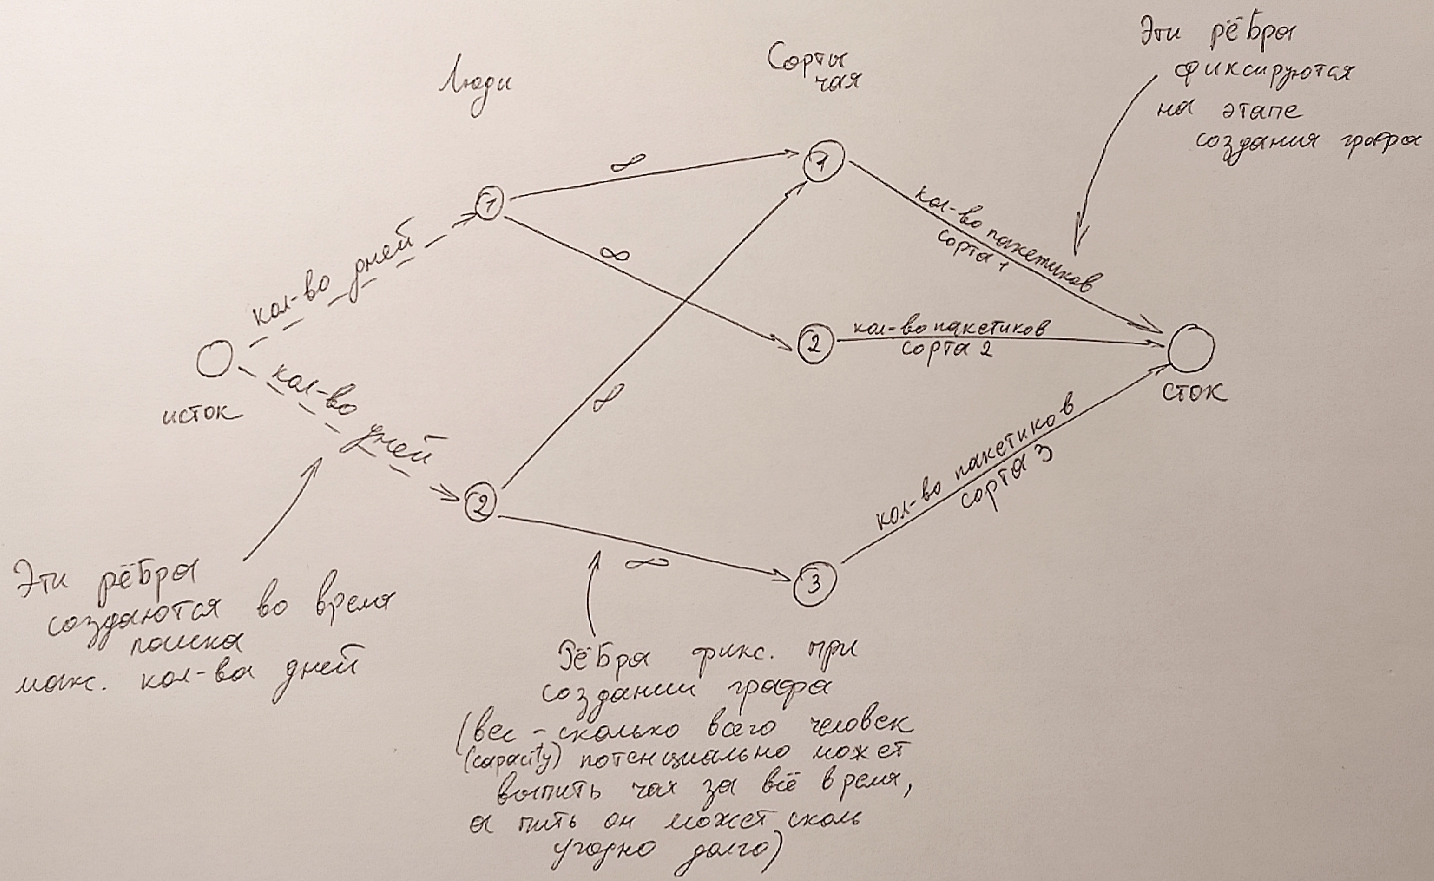 Люди
Сорты
чая
Эти рёбра
фиксируются
на этапе
создания графа
1
∞
1
кол-во пакетиков
сорта 1
∞
кол-во дней
2
кол-во пакетиков
сорта 2
исток
сток
кол-во дней
∞
2
кол-во пакетиков
сорта 3
∞
3
Эти рёбра
создаются во время
поиска
макс. кол-ва дней
Рёбра фикс. при
создании графа
(вес - сколько всего человек
(capacity) потенциально может
выпить чая за всё время,
а пить он может сколь
угодно долго)